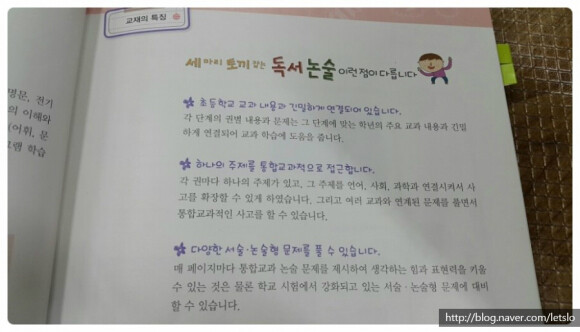 교재의 특징
세 마리 토끼 잡는 독서 논술 이런 점이 다릅니다
초등학교 교과 내용과 긴밀하게 연결되어 있습니다.
각 단계의 권별 내용과 문제는 그 단계에 맞는 학년의 주요 교과 내용과 긴밀
하게 연결되어 교과 학습에 도움을 줍니다.
하나의 주제를 통합교과적으로 접근합니다.
각 권마다 하나의 주제가 있고, 그 주제를 언어, 사회, 과학과 연결시켜서 사
고를 확장할 수 있게 하였습니다. 그리고 여러 교과와 연계된 문제를 풀면서
통합교과적인 사고를 할 수 있습니다.
다양한 서술·논술형 문제를 풀 수 있습니다.
매 페이지마다 통합교과 논술 문제를 제시하여 생각하는 힘과 표현력을 키울
수 있는 것은 물론 학교 시험에서 강화되고 있는 서술·논술형 문제에 대비
할 수 있습니다.
명문, 전기
의 이해와
(어휘, 문
그램 학습
http://blog.naver.com/letslo